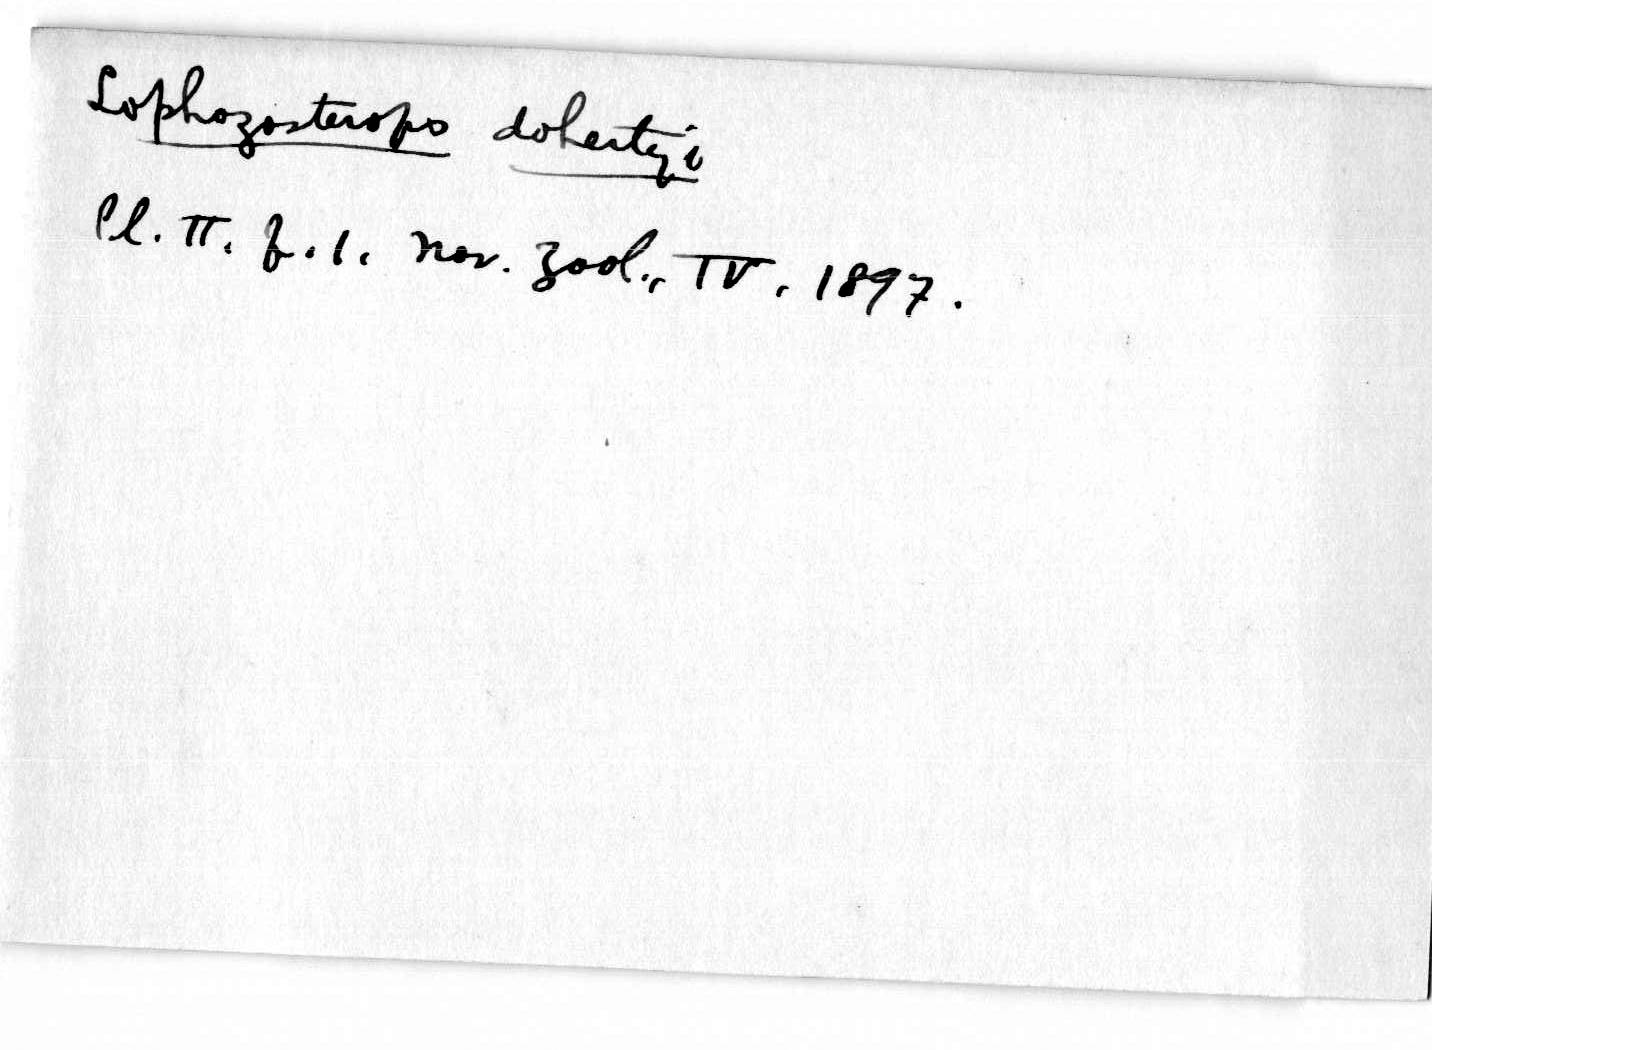 Lophozosterops dohertyi
Pl. II. f. 1. Nov. Zool., IV, 1897.